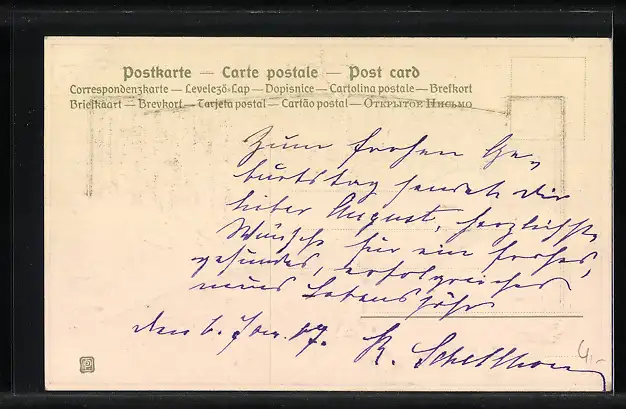 Postkarte — Carte postale — Post card
Correspondenzkarte — Levelező-Lap — Dopisnice — Cartolina postale — Brefkort
Briefkaart — Brevkort — Tarjeta postal — Cartão postal — Открытое Письмо
Zum frohen Ge-
burtstag sendet dir
lieber August, herzlichste
Wünsche für ein frohes,
gesundes, erfolgreiches
neues Lebensjahr
den 6. Jan. 07. K.
4.-